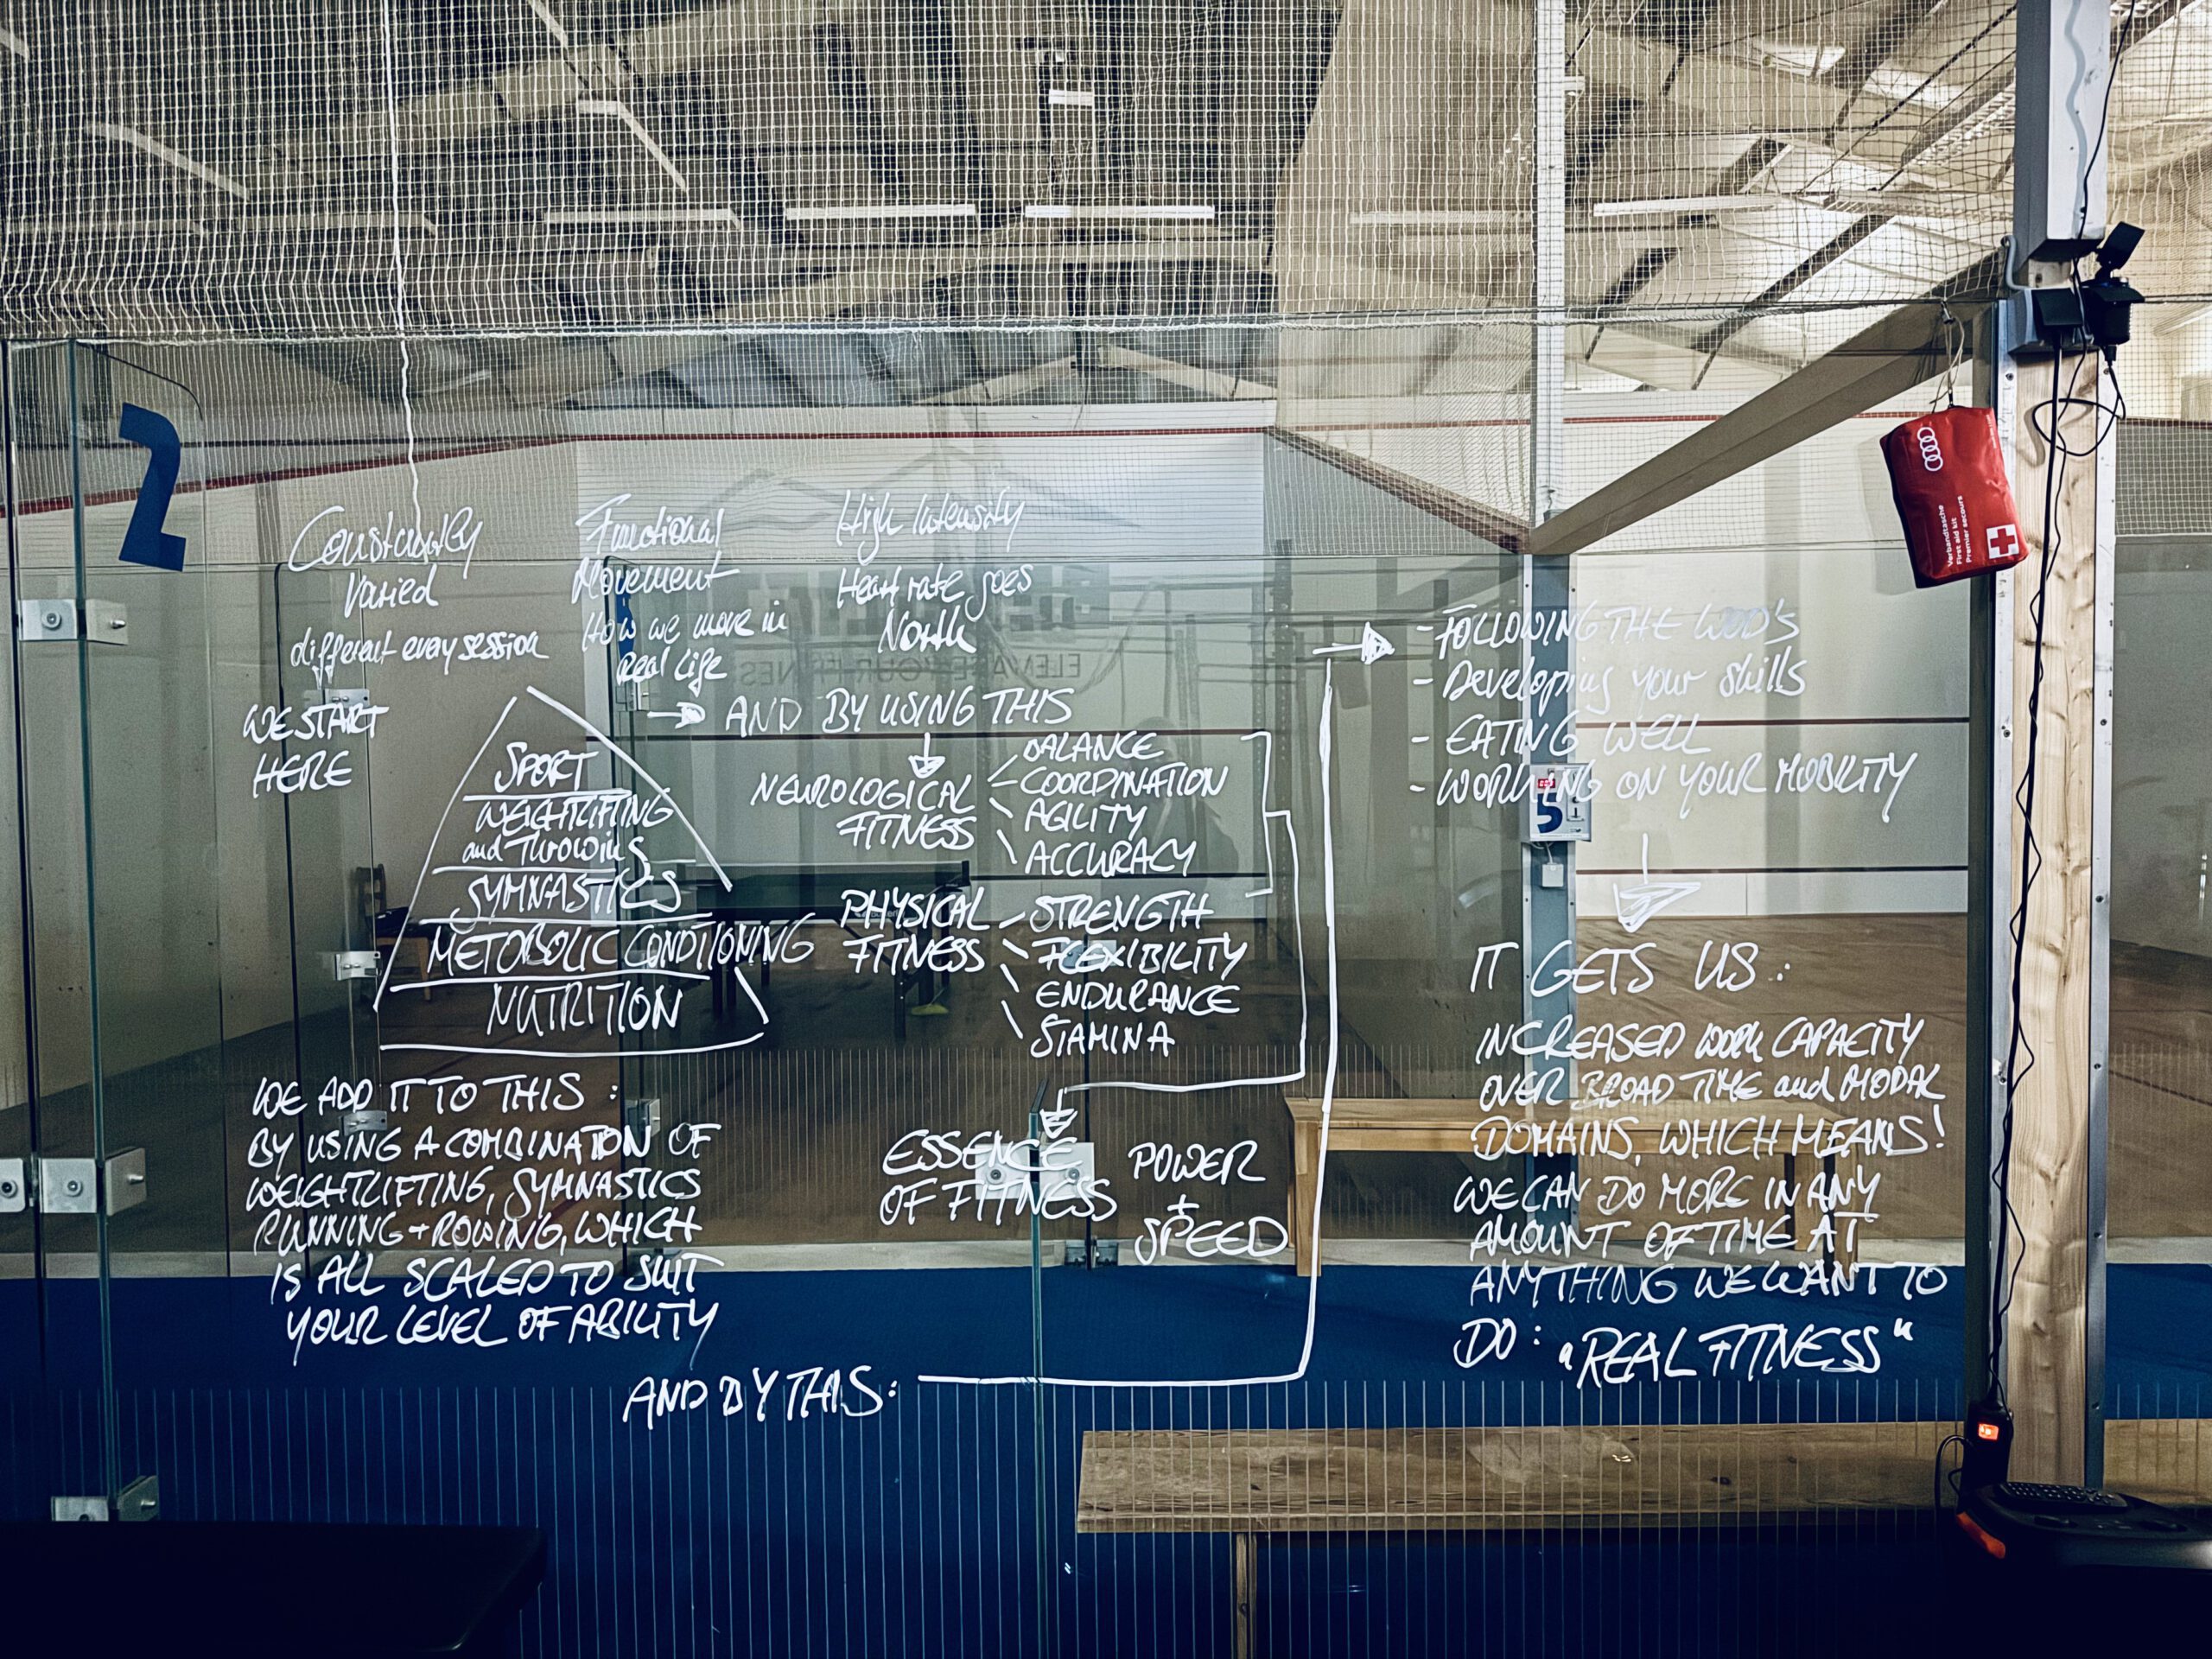 2
Constantly
Varied
different every session
Functional
Movement
How we move in
Real Life
High Intensity
Heart rate goes
North
WE START
HERE
SPORT
WEIGHTLIFTING
and Throwing
GYMNASTICS
METOBOLIC CONDITIONING
NUTRITION
AND BY USING THIS
NEUROLOGICAL
FITNESS
BALANCE
COORDINATION
AGILITY
ACCURACY
PHYSICAL
FITNESS
STRENGTH
FLEXIBILITY
ENDURANCE
STAMINA
WE ADD IT TO THIS:
BY USING A COMBINATION OF
WEIGHTLIFTING, GYMNASTICS
RUNNING + ROWING, WHICH
IS ALL SCALED TO SUIT
YOUR LEVEL OF ABILITY
ESSENCE
OF FITNESS
POWER
+
SPEED
AND BY THIS:
- FOLLOWING THE WOD's
- Developing your skills
- EATING WELL
- WORKING ON YOUR MOBILITY
IT GETS US:
INCREASED WORK CAPACITY
OVER BROAD TIME and MODAL
DOMAINS, WHICH MEANS!
WE CAN DO MORE IN ANY
AMOUNT OF TIME AT
ANYTHING WE WANT TO
DO: "REAL FITNESS"
ELEVATE YOUR FITNESS
5
Verbandtasche
First aid kit
Premier secours